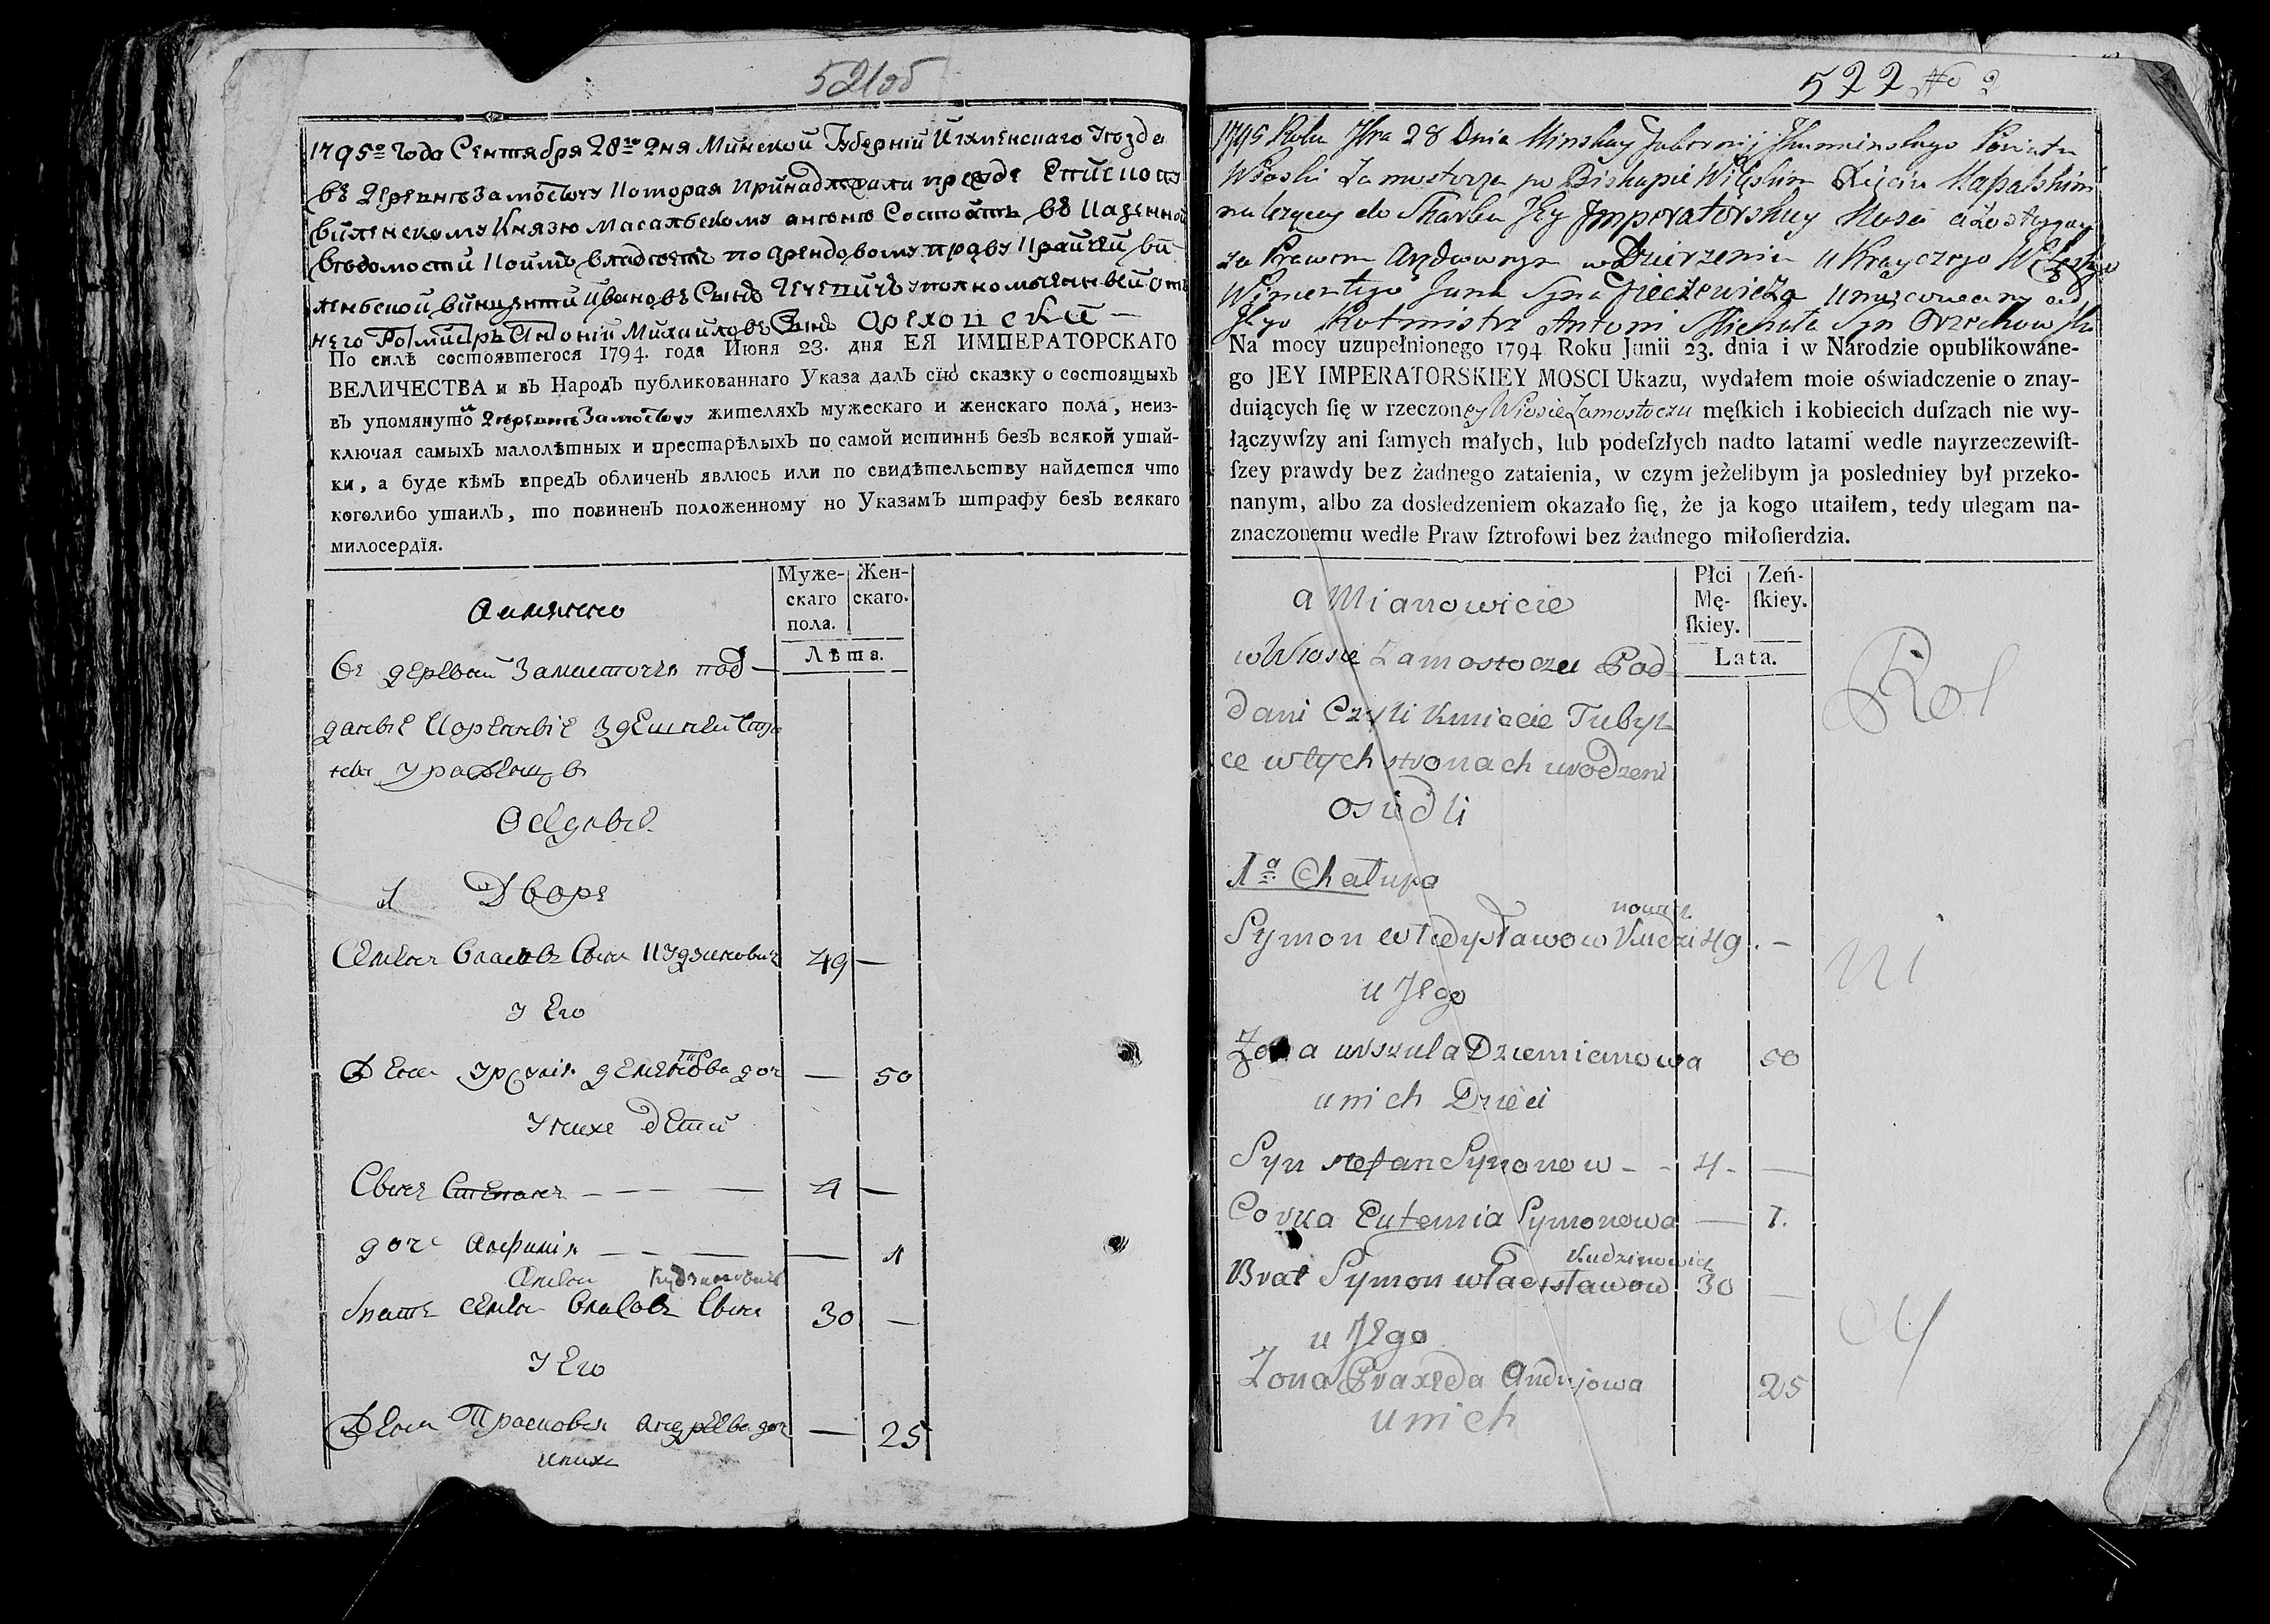 521об
1795го Года Сентября 28го Дня Минской Губерній Игуменскаго Уезда
въ Деревне Замосточу которая принадлежала прежде Епископу
виленскому Князю Масальскому а ныне Состоитъ въ Казенной
ведомости коимъ владееть по арендовому праву Крайчей ви-
ленской викентий Ивановъ Сынъ уполномоченный отъ
него Ротмистръ Антоній Михайловъ Сынъ
По силѣ состоявшегося 1794. года Июня 23. дня ЕЯ ИМПЕРАТОРСКАГО
ВЕЛИЧЕСТВА и въ Народъ публикованнаго Указа далъ сію сказку о состоящыхъ
въ упомянутой Деревне Замосточу жителяхъ мужескаго и женскаго пола, неиз-
ключая самыхъ малолѣтныхъ и престарѣлыхъ по самой истиннѣ безъ всякой утай-
ки, а буде кѣмъ впредъ обличенъ явлюсь или по свидѣтельству найдется что
коголибо утаилъ, то повиненъ положенному по Указамъ штрафу безъ всякаго
милосердїя.
Муже-скаго пола. Жен-скаго.
Лѣта.
а имянно
въ деревни Замосточи под-
даные коренные здешней
уроженцы
Оседлые
1 Дворъ
Семенъ Власовъ Сынъ Кудзиновичъ 49 —
у Его
Жена Урсуля Дементьева доч — 50
у нихъ дети
Сынъ Степанъ — — — 4 —
дочь Анфимия — — — — 1
Кудзиновичъ
братъ Семен Власовъ Сынъ 30 —
у Его
Жена Прасковья Андреева доч — 25
у нихъ
522 No 2
1795 Roku 7bra 28 Dnia Minskiey Gubernij Ihuminskiego Powiatu
Wioski Zamostocza po Biskupie Wileńskim Xięciu Massalskim
należącey do Skarbu Jey Imperatorskiey Mości a zostającey
za Prawem Arędownym w Dzierżeniu u Krayczego
Wincentego Jana Syna Jieczewicza umocowany od
Jego Rotmistrz Antoni Michała Syn Orzechowski
Na mocy uzupełnionego 1794 Roku Junii 23. dnia i w Narodzie opublikowane-
go JEY IMPERATORSKIEY MOSCI Ukazu, wydałem moie oświadczenie o znay-
duiących ſię w rzeczoney Wiosce Zamostoczu męſkich i kobiecich duſzach nie wy-
łączywſzy ani ſamych małych, lub podeſzłych nadto latami wedle nayrzeczewiſt-
ſzey prawdy bez żadnego zataienia, w czym jeżelibym ja posledniey był przeko-
nanym, albo za dosledzeniem okazało ſię, że ja kogo utaiłem, tedy ulegam na-
znaczonemu wedle Praw ſztrofowi bez żadnego miłoſierdzia.
Płci Mę-ſkiey. Zeń-ſkiey.
Lata.
a Mianowicie
w Wiosce Zamostoczu Pod
dani Czyli Kmiecie Tubyl
ce w tych stronach urodzeni
osiedli
1a Chałupa
nowicz
Symon Władysławow Kudzi 49. —
u Jego
Zona Urszula Dziemianowa 50
u nich Dzieci
Syn Stefan Symonow - - 4 - —
Corka Eufemia Symonowa — 1.
Kudzinowicz
Brat Symon Władysławow 30 —
u Jego
Zona Praxeda Andrejowa 25
u nich